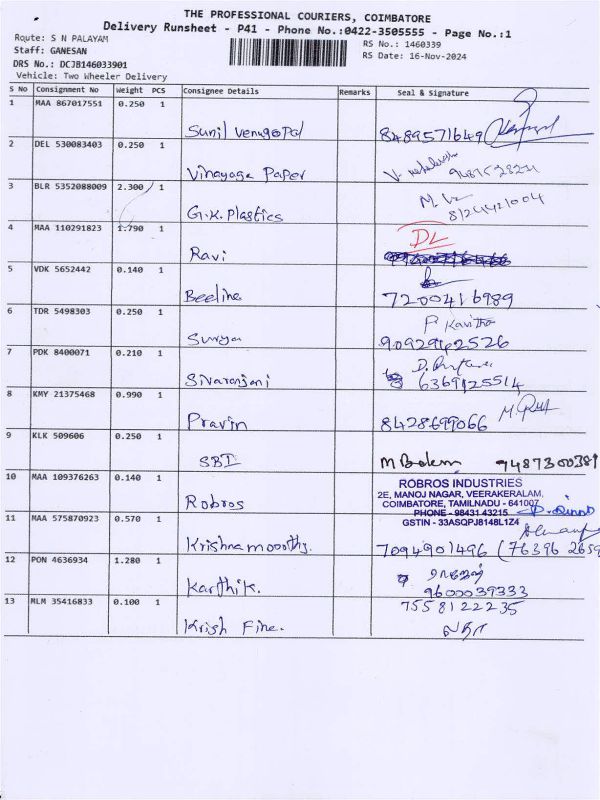 THE PROFESSIONAL COURIERS, COIMBATORE
Delivery Runsheet - P41 - Phone No.:0422-3505555 - Page No.:1
Route: S N PALAYAM
RS No.: 1460339
Staff: GANESAN
RS Date: 16-Nov-2024
DRS No.: DCJB146033901
Vehicle: Two Wheeler Delivery
S No Consignment No Weight PCS Consignee Details Remarks Seal & Signature
1 MAA 867017551 0.250 1
Sunil Venugopal 8489571649
2 DEL 530083403 0.250 1
Vinayaga Paper
3 BLR 5352088009 2.300 1
G.K. Plastics
4 MAA 110291823 1.790 1 DL
Ravi
5 VDK 5652442 0.140 1
Beeline 7200416989
6 TDR 5498303 0.250 1 P. Kavitha
Surya 9092962526
7 PDK 8400071 0.210 1
Sivaranjani 6369125514
8 KMY 21375468 0.990 1
Pravin 8428699066
9 KLK 509606 0.250 1
SBI 9487300381
10 MAA 109376263 0.140 1 ROBROS INDUSTRIES
2E, MANOJ NAGAR, VEERAKERALAM,
Robros COIMBATORE, TAMILNADU - 641007
PHONE - 98431 43215
GSTIN - 33ASQPJ8148L1Z4
11 MAA 575870923 0.570 1
Krishnamoorthy. 7094901496 (76396 2659
12 PON 4636934 1.280 1
Karthik. 9600039333
13 MLM 35416833 0.100 1 7558122235
Krish Fine. லதா